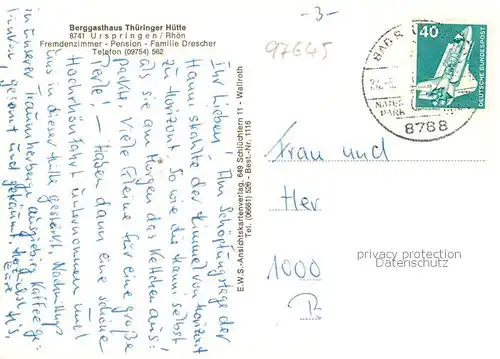 Berggasthaus Thüringer Hütte
8741 Urspringen / Rhön
Fremdenzimmer - Pension - Familie Drescher
Telefon (09754) 562
-3-
97645
Ihr Lieben! Am Schöpfungstage der
Hanni strahlte der Himmel von Horizont
zu Horizont. So wie die Hanni selbst
als sie am Morgen das Kettchen aus-
packte. Viele kleine für eine große
Perle! — Haben dann eine schöne
Hochrhönfahrt unternommen und
uns in dieser Hütte gestärkt. Nachmittags
in unserer Traumherberge ausgiebig Kaffee ge-
trunken, geträumt und
Eure
E.W.S.-Ansichtskartenverlag, 649 Schlüchtern 11 - Wallroth
Tel. (06661) 526 - Best.-Nr. 1116
40
DEUTSCHE BUNDESPOST
NATUR
PARK
8788
Frau und
Her
1000
B
privacy protection
Datenschutz